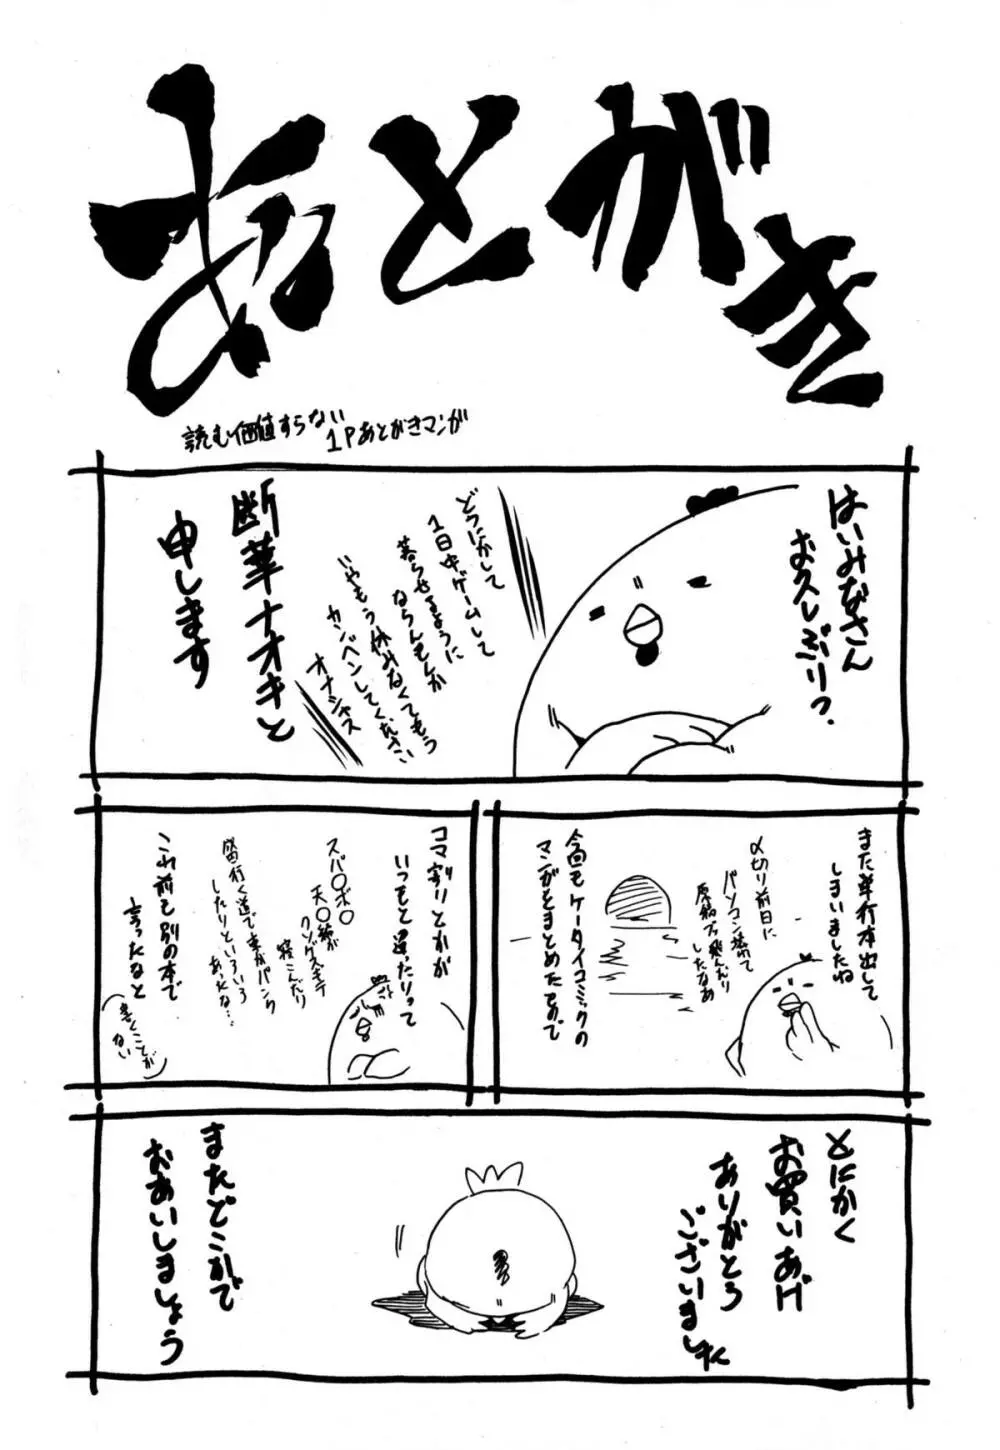 あとがき
読む価値すらない
1Pあとがきマンガ
はいみなさん
お久しぶりっ。
どうにかして
1日中ゲームして
暮らせるように
ならんもんか
いやもう休みなくてもう
カンベンしてください
オナシャス
断華ナオキと
申します
また単行本出して
しまいましたね
〆切り前日に
パソコン壊れて
原稿ブッ飛んだり
したなあ
今回もケータイコミックの
マンガをまとめたもので
コマ割りとかが
いつもと違ったりって
スパ○ボ○
天○編が
クソゲスギテ
寝こんだり
出行く道で車がパンク
したりといろいろ
あったな…
これ前も別の本で
言ったなと
(書くことが
ない)
とにかく
お買いあげ
ありがとう
ございました
またどこかで
おあいしましょう